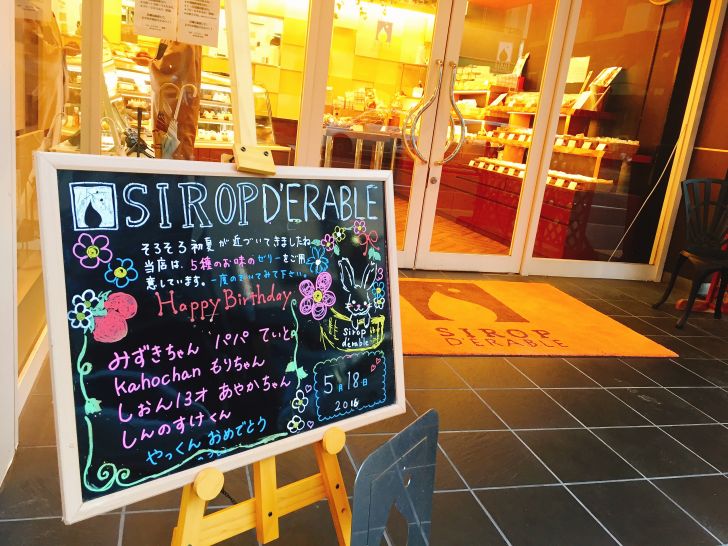 SIROP D'ERABLE
そろそろ初夏が近づいてきましたね
当店は、5種のお味のゼリーをご用
意しています。一度のぞいてみて下さい。
Happy Birthday
みずきちゃん パパ ていと
Kahochan もりちゃん
しおん13才 あやかちゃん
しんのすけくん
やっくん おめでとう
Sirop
d'erable
5月18日
2016
SIROP
D'ERABLE